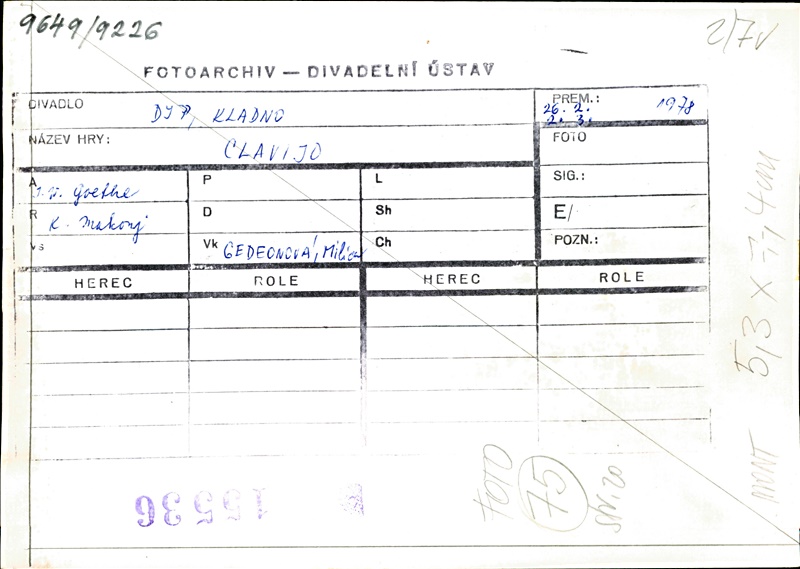 9649/9226
2/7v
FOTOARCHIV — DIVADELNÍ ÚSTAV
DIVADLO DJP, KLADNO
PREM.: 26. 2. 1978
2. 3.
NÁZEV HRY: CLAVIJO
FOTO
A J.W. Goethe
P
L
SIG.:
R K. Makonj
D
Sh
E/
Vs
Vk GEDEONOVÁ, Milica
Ch
POZN.:
HEREC ROLE HEREC ROLE
15536
FOTO
75
str. 20
MONT 5,3 X 7,4 cm